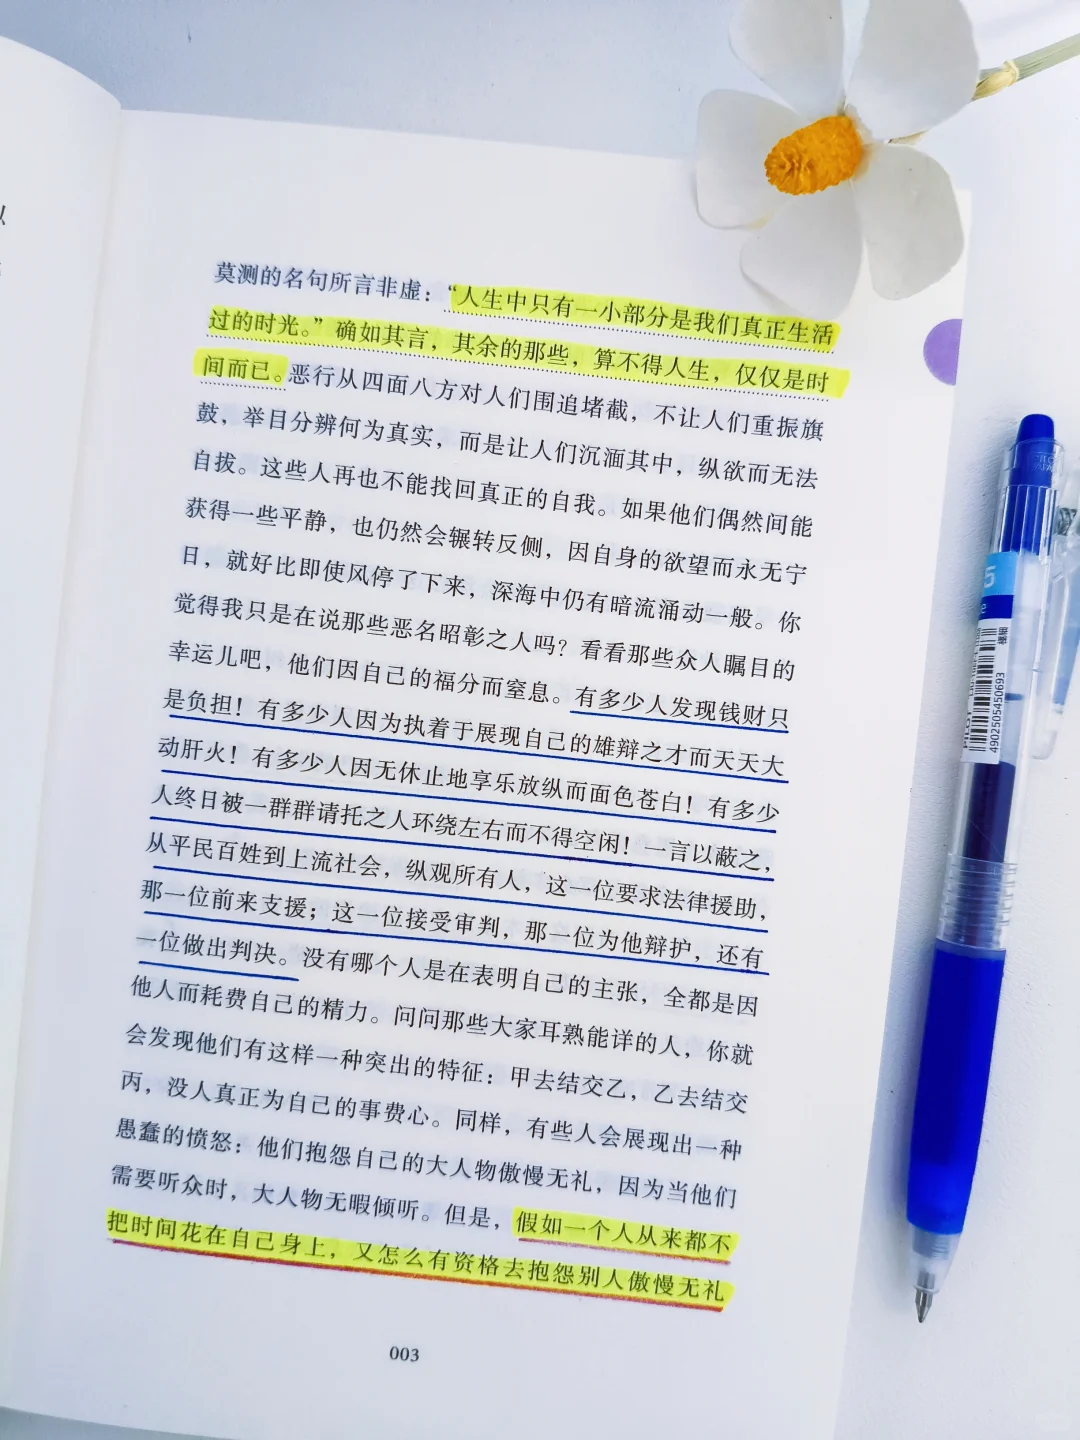 莫测的名句所言非虚：“人生中只有一小部分是我们真正生活
过的时光。”确如其言，其余的那些，算不得人生，仅仅是时
间而已。恶行从四面八方对人们围追堵截，不让人们重振旗
鼓，举目分辨何为真实，而是让人们沉湎其中，纵欲而无法
自拔。这些人再也不能找回真正的自我。如果他们偶然间能
获得一些平静，也仍然会辗转反侧，因自身的欲望而永无宁
日，就好比即使风停了下来，深海中仍有暗流涌动一般。你
觉得我只是在说那些恶名昭彰之人吗？看看那些众人瞩目的
幸运儿吧，他们因自己的福分而窒息。有多少人发现钱财只
是负担！有多少人因为执着于展现自己的雄辩之才而天天大
动肝火！有多少人因无休止地享乐放纵而面色苍白！有多少
人终日被一群群请托之人环绕左右而不得空闲！一言以蔽之，
从平民百姓到上流社会，纵观所有人，这一位要求法律援助，
那一位前来支援；这一位接受审判，那一位为他辩护，还有
一位做出判决。没有哪个人是在表明自己的主张，全都是因
他人而耗费自己的精力。问问那些大家耳熟能详的人，你就
会发现他们有这样一种突出的特征：甲去结交乙，乙去结交
丙，没人真正为自己的事费心。同样，有些人会展现出一种
愚蠢的愤怒：他们抱怨自己的大人物傲慢无礼，因为当他们
需要听众时，大人物无暇倾听。但是，假如一个人从来都不
把时间花在自己身上，又怎么有资格去抱怨别人傲慢无礼
003
PILOT
4902505450693